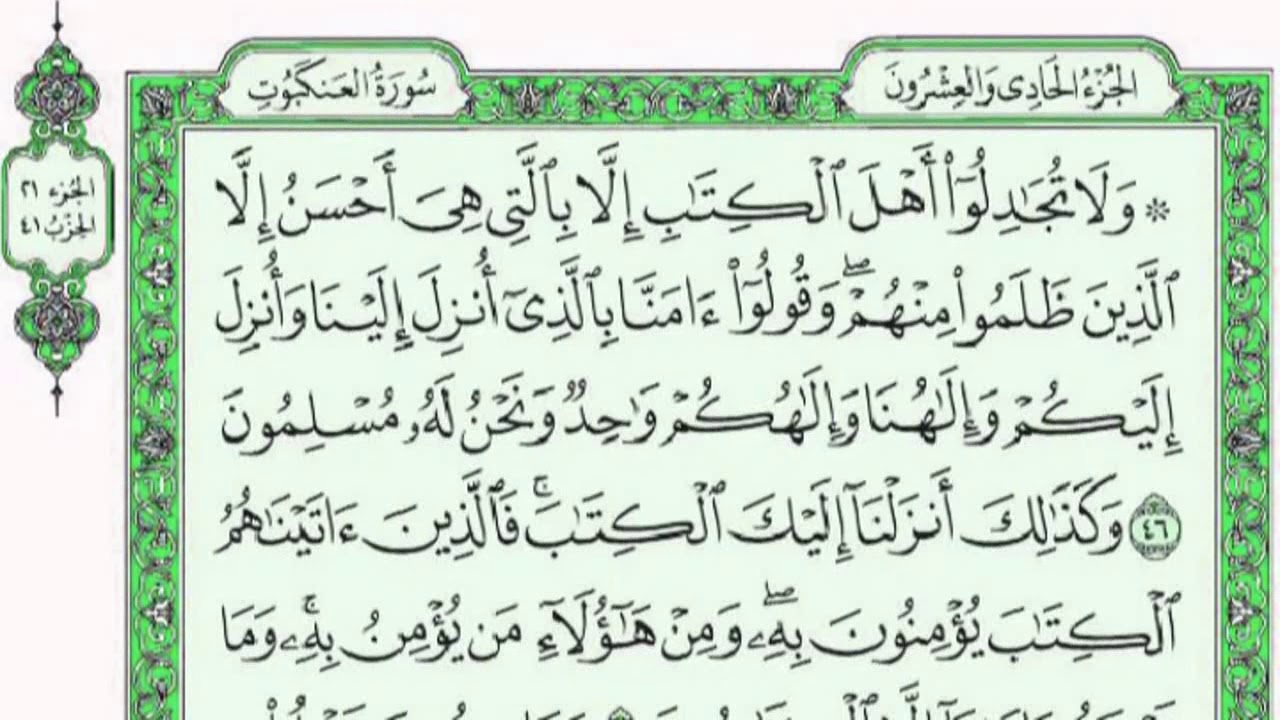 الجُزْءُ الحَادِى وَالعِشْرُونَ
سُورَةُ العَنكَبُوتِ
الجُزء ٢١
الحِزبُ ٤١
* وَلَا تُجَٰدِلُوٓا۟ أَهْلَ ٱلْكِتَٰبِ إِلَّا بِٱلَّتِى هِىَ أَحْسَنُ إِلَّا
ٱلَّذِينَ ظَلَمُوا۟ مِنْهُمْ ۖ وَقُولُوٓا۟ ءَامَنَّا بِٱلَّذِىٓ أُنزِلَ إِلَيْنَا وَأُنزِلَ
إِلَيْكُمْ وَإِلَٰهُنَا وَإِلَٰهُكُمْ وَٰحِدٌ وَنَحْنُ لَهُۥ مُسْلِمُونَ
٤٦ وَكَذَٰلِكَ أَنزَلْنَآ إِلَيْكَ ٱلْكِتَٰبَ ۚ فَٱلَّذِينَ ءَاتَيْنَٰهُمُ
ٱلْكِتَٰبَ يُؤْمِنُونَ بِهِۦ ۖ وَمِنْ هَٰٓؤُلَآءِ مَن يُؤْمِنُ بِهِۦ ۚ وَمَا